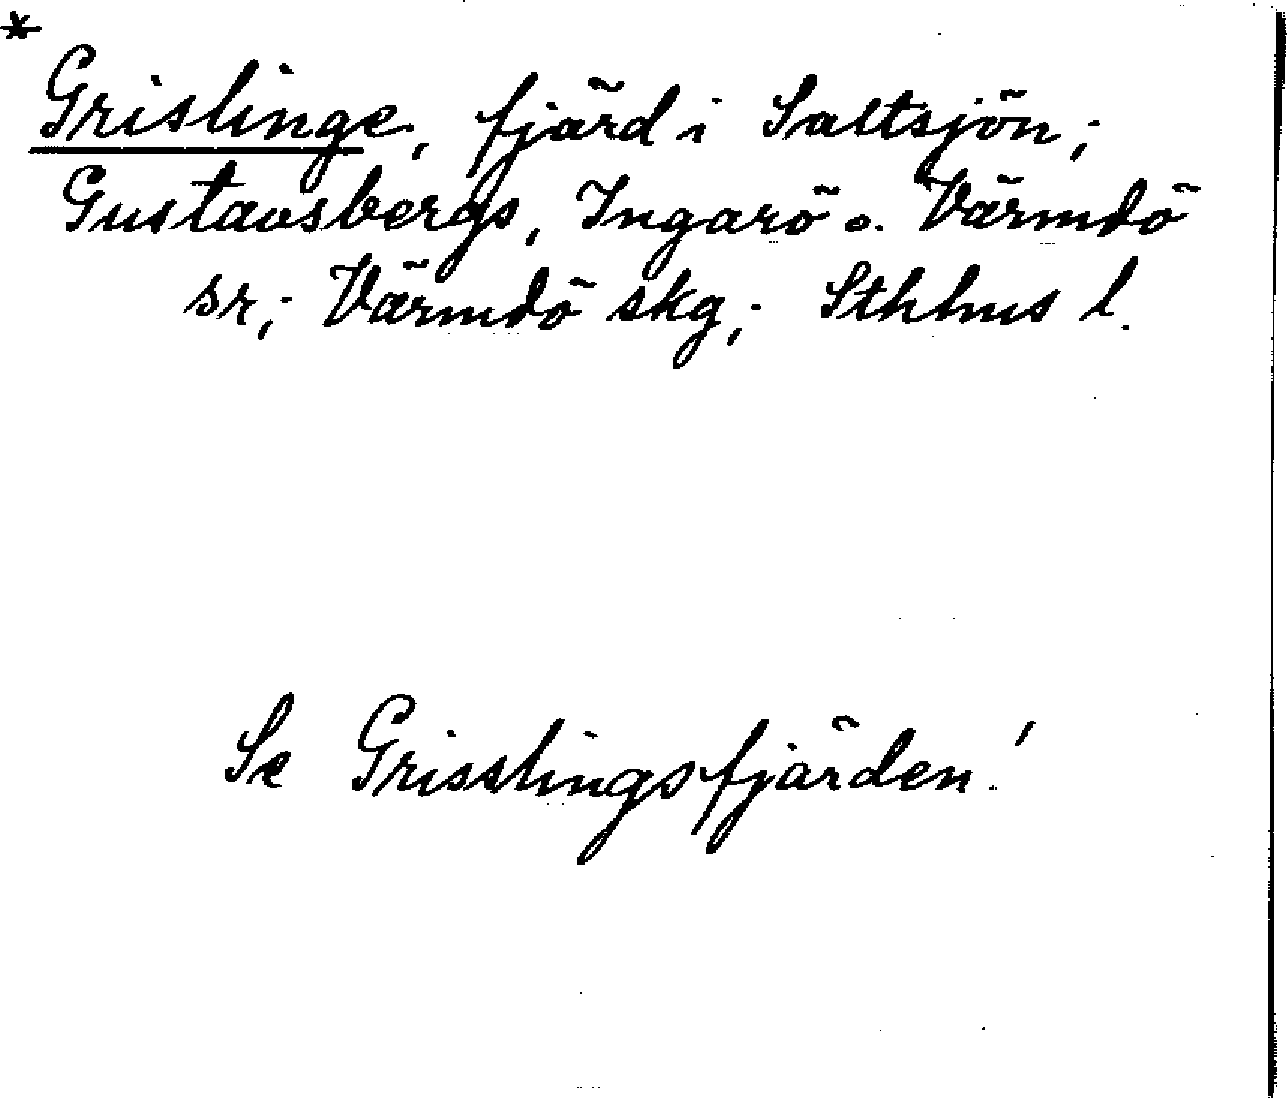 *
Grislinge, fjärd i Saltsjön;
Gustavsbergs, Ingarö o. Värmdö
sr; Värmdö skg; Sthlms l.
Se Grisslingsfjärden!